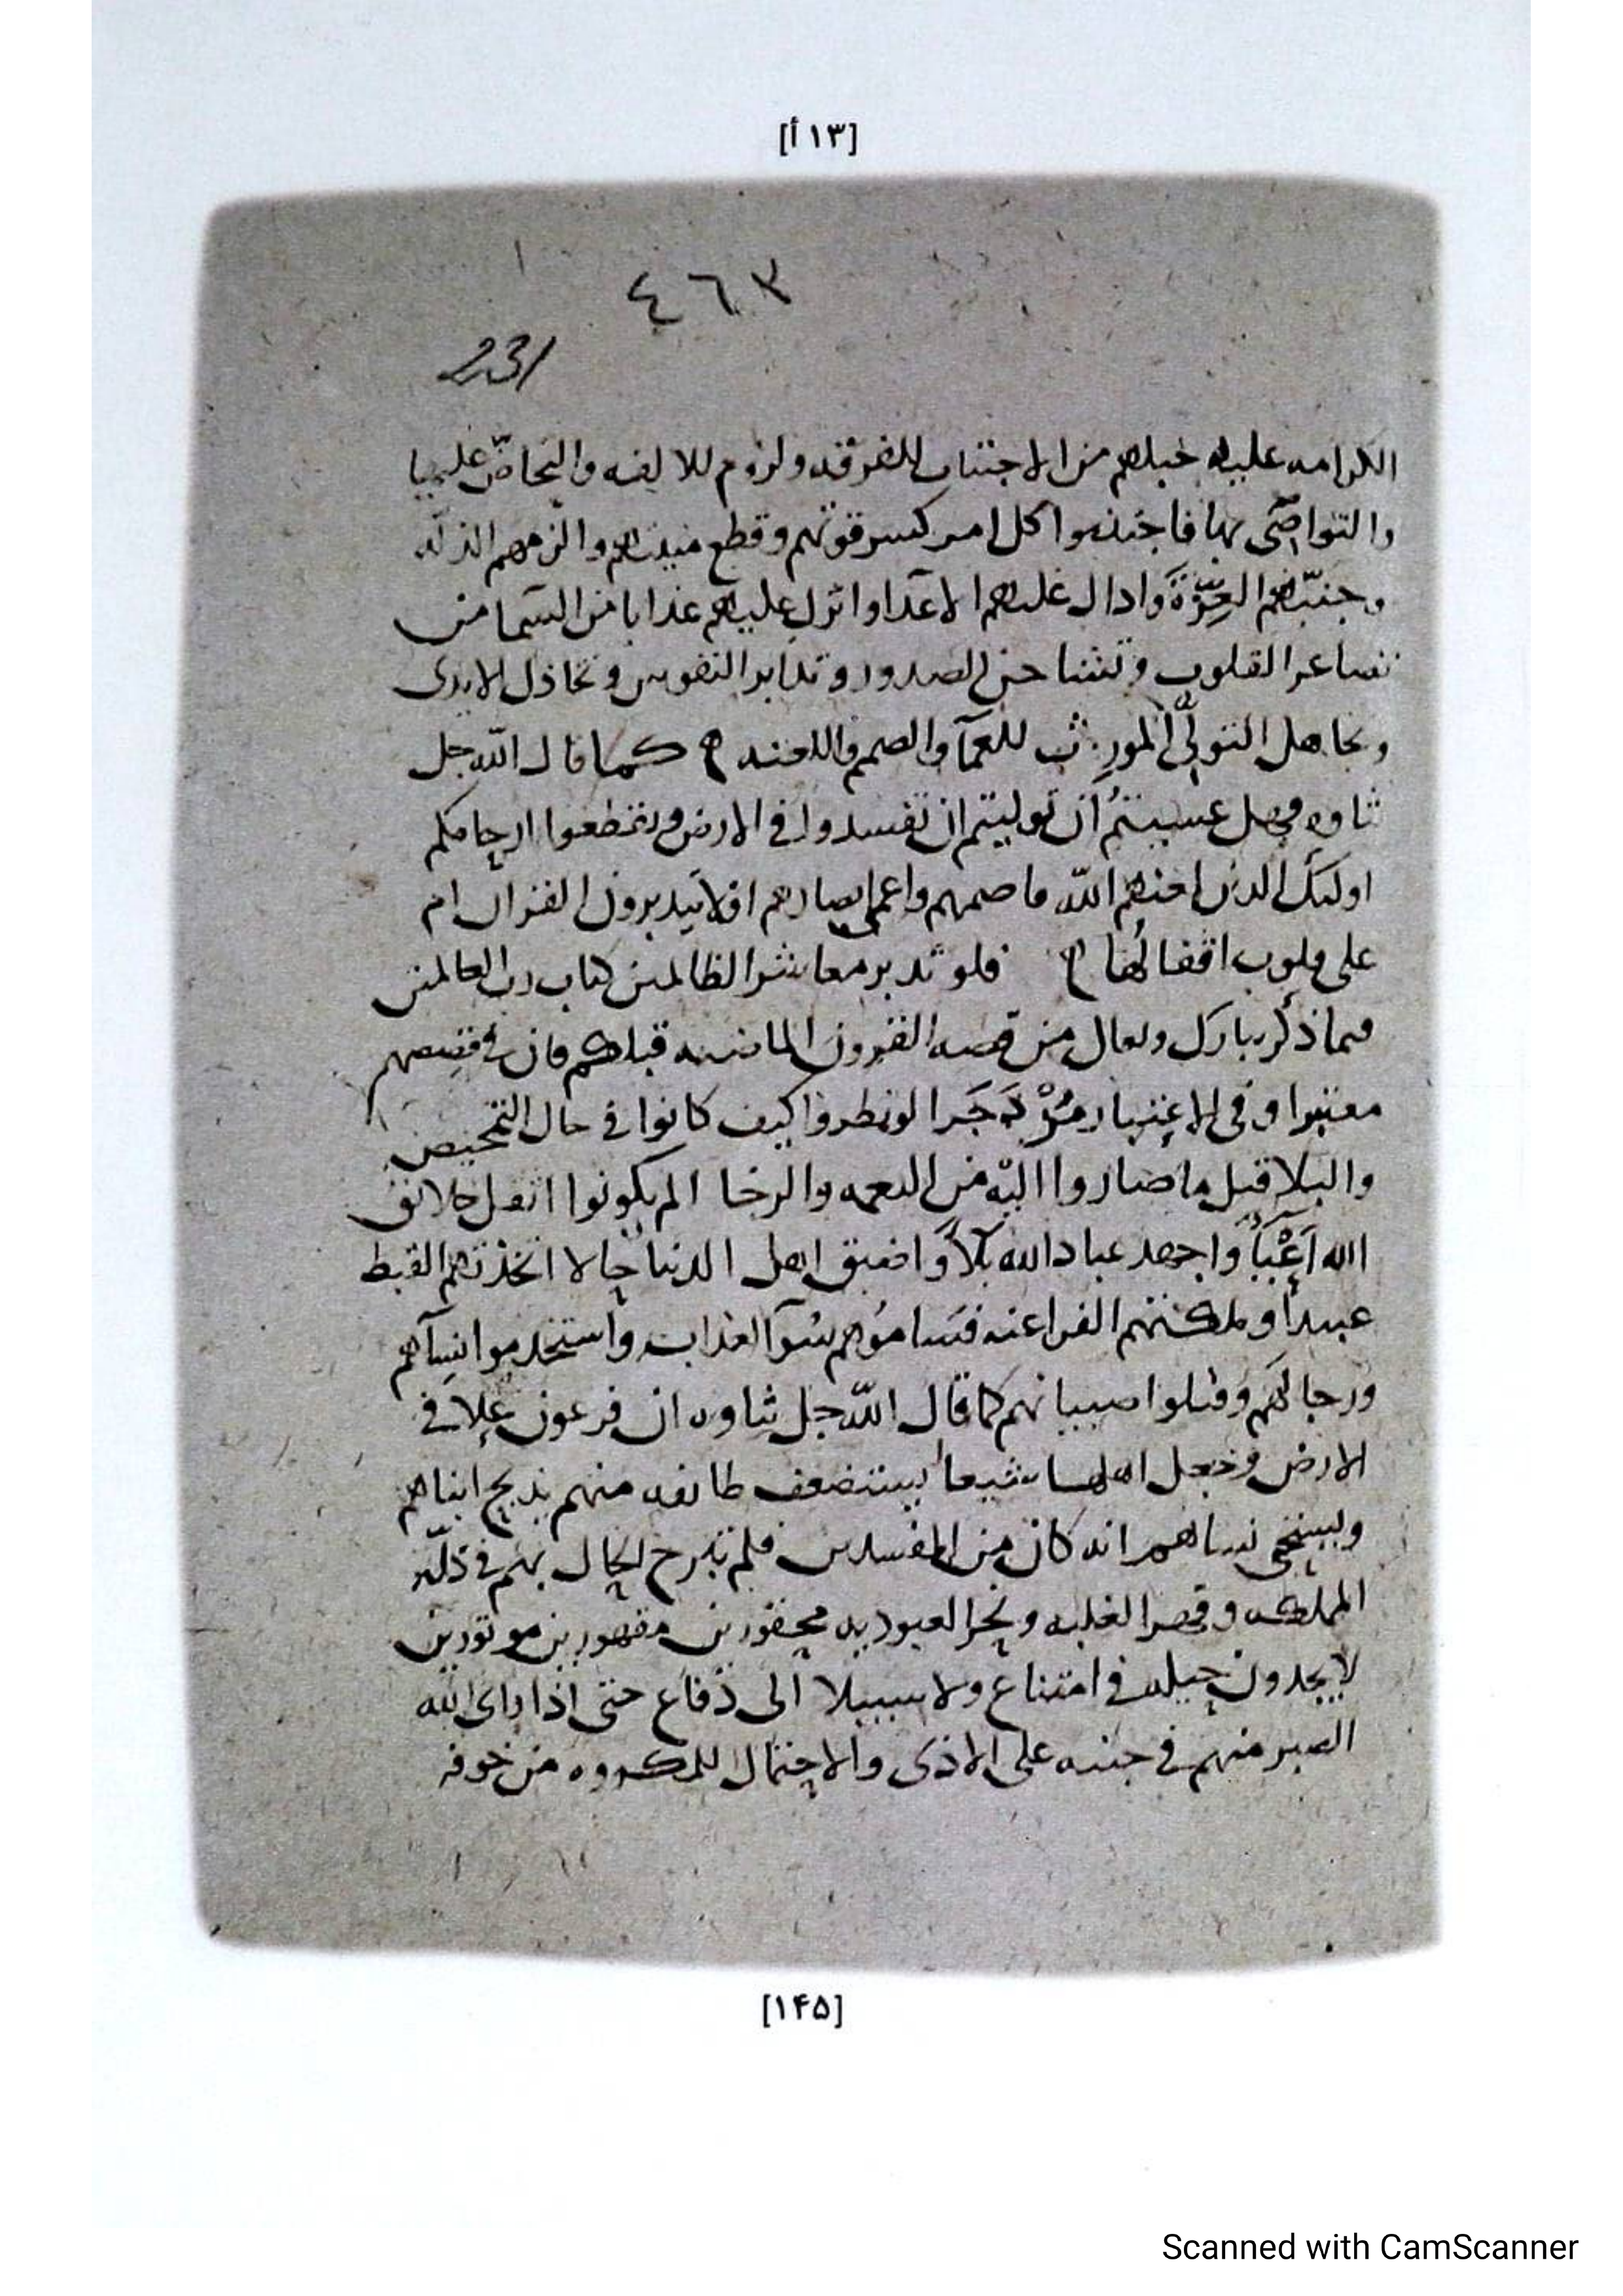 [١٣ أ]
٤٦٣
231
الكرامه عليه حبلهم من الاجتناب للفرقه ولزوم للالفه والتحاضّ عليها
والتواصى بها فاجتنبوا كل امر كسر قوتهم وقطع منتهم والزمهم الذله
وجنبّهم العِزّةَ وادال عليهم الاعدا وانزل عليهم عذابا من السما من
تصاغر القلوب وتشاحن الصدور وتدابر النفوس وتخاذل الايدى
وتجاهل التولّى المورث للعمآ والصمم واللعنه ه كما قال اللّه جل
ثناوه فهل عسيتمُ ان توليتم ان تفسدوا فى الارض وتقطعوا ارحامكم
اولئك الذين لعنهم اللّه فاصمهم واعمى ابصارهم افلا يتدبرون القران ام
على قلوب اقفالُها ه فلو تدبر معاشر الظالمين كتاب رب العالمين
فيما ذكر تبارك وتعالى من قصه القرون الماضيه قبلكم فان فى قصصهم
معتبرا وفى الاعتبار مُزْدَجَرا لو نظروا كيف كانوا فى حال التمحيص
والبلا قبل ما صاروا اليْه من النعمه والرخا الم يكونوا اثقل خلائق
الله اَعْبَآً واجهد عباد الله بَلآً واضيق اهل الدنيا حالا اتخذتهم القبط
عبيداً وملكتهم الفراعنه فسَامُوهم سُوآ العذاب واستخدموا نسآهم
ورجالهم وقتلوا صبيانهم كما قال اللّه جل ثناوه ان فرعون علا فى
الارض وجعل اهلها شيعا يستضعف طائفه منهم يذبح ابناهم
ويستحى نساهم انه كان من المفسدين فلم تبرح الحال بهم فى ذلّه
الملكه وقهر الغلبه و العبوديه محقورين مقهورين موتورين
لا يجدون حيله فى امتناع ولا سبيلا الى دفاع حتى اذا راى الله
الصبر منهم فى جنبه على الاذى والاحتمال للمكروه من خوفه
[١۴۵]
Scanned with CamScanner